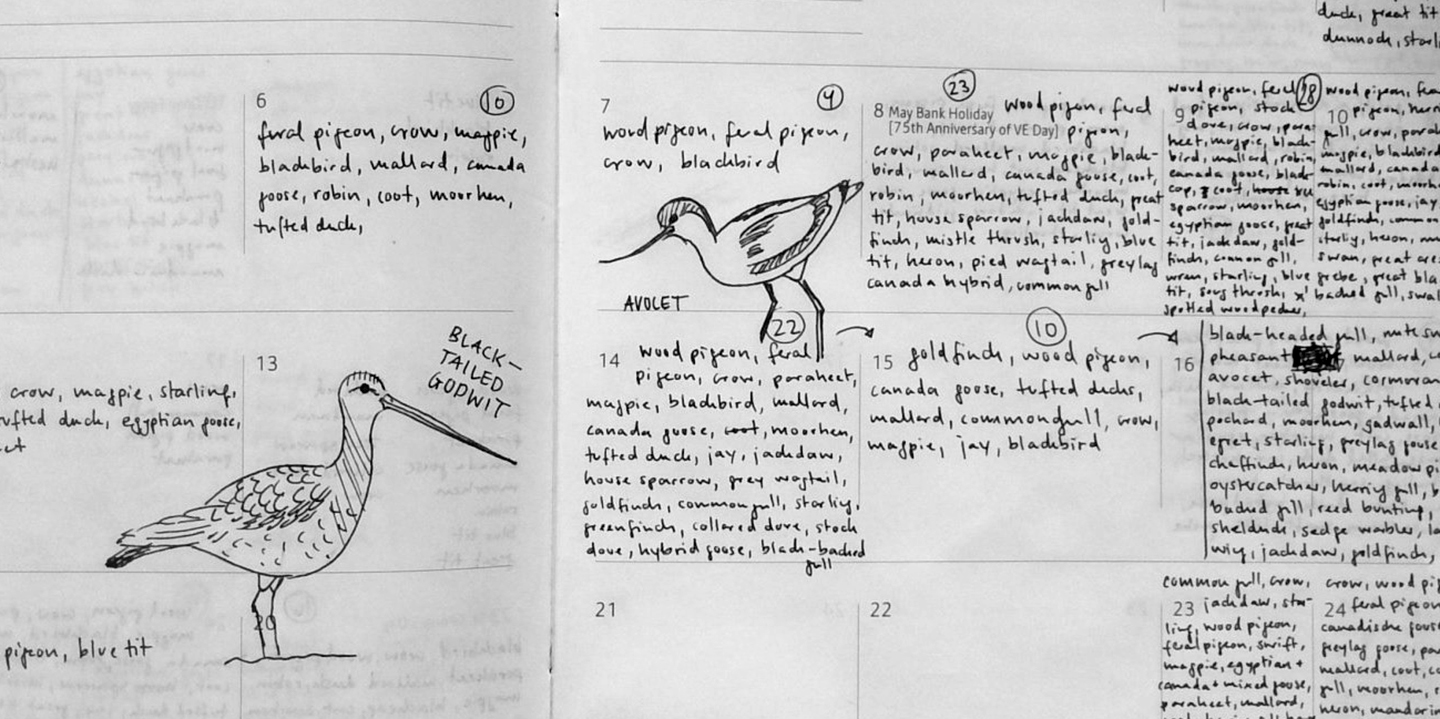 duck, great tit
dunnock, starli
6
10
feral pigeon, crow, magpie,
blackbird, mallard, canada
goose, robin, coot, moorhen,
tufted duck,
7
4
wood pigeon, feral pigeon,
crow, blackbird
AVOCET
23
8 May Bank Holiday
[75th Anniversary of VE Day]
wood pigeon, feral
pigeon,
crow, parakeet, magpie, black-
bird, mallard, canada goose, coot,
robin, moorhen, tufted duck, great
tit, house sparrow, jackdaw, gold-
finch, mistle thrush, starling, blue
tit, heron, pied wagtail, greylag
canada hybrid, common gull
wood pigeon, feral
28
9 pigeon, stock
dove, crow, para-
keet, magpie, black-
bird, mallard, robin,
canada goose, black-
cap, coot,
sparrow, moorhen,
egyptian goose, great
tit, jackdaw, gold-
finch, common gull,
wren, starling, blue
tit, song thrush,
spotted woodpecker,
wood pigeon, fera
10 pigeon, hern
gull, crow, parak
magpie, blackbird
mallard, canada
robin, coot, moorh
egyptian goose, jay
goldfinch, common
starlig, heron, mu
swan, great cre
grebe, great bla
backed gull, swal
crow, magpie, starling,
tufted duck, egyptian goose,
13
BLACK-
TAILED
GODWIT
22
14 wood pigeon, feral
pigeon, crow, parakeet,
magpie, blackbird, mallard,
canada goose, coot, moorhen,
tufted duck, jay, jackdaw,
house sparrow, grey wagtail,
goldfinch, common gull, starlig,
greenfinch, collared dove, stock
dove, hybrid goose, black-backed
gull
10
15 goldfinch, wood pigeon,
canada goose, tufted ducks,
mallard, common gull, crow,
magpie, jay, blackbird
16
black-headed gull, mute sw
pheasant mallard, co
avocet, shoveler, cormoran
black-tailed godwit, tufted
pochard, moorhen, gadwall,
egret, starling, greylag goose
chaffinch, heron, meadow pi
oystercatcher, herring gull, b
backed gull, reed bunting,
shelduck, sedge warbler, la
wig, jackdaw, goldfinch,
20
pigeon, blue tit
21
22
common gull, crow,
23 jackdaw, star-
ling, wood pigeon,
feral pigeon, swift,
magpie, egyptian +
canada + mixed goose,
parakeet, mallard,
crow, wood pig
24 feral pigeon
canadische goose
greylag goose, par
mallard, coot, co
gull, moorhen,
heron, mandarin